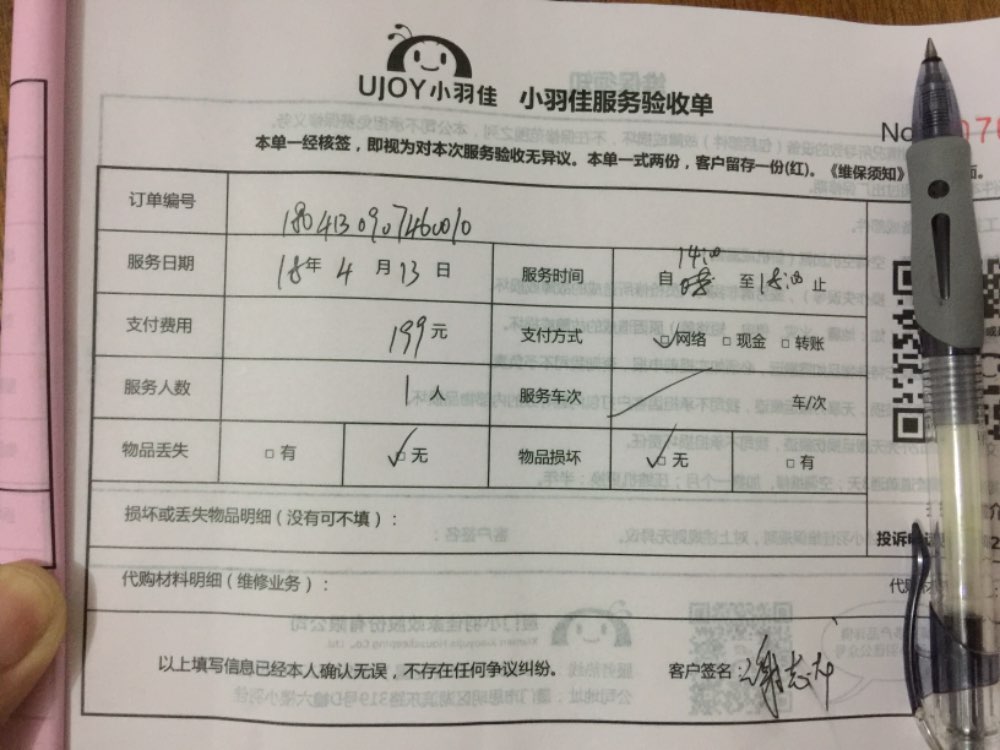 UJOY小羽佳 小羽佳服务验收单
No 07
本单一经核签，即视为对本次服务验收无异议。本单一式两份，客户留存一份(红)。《维保须知》 面。
订单编号 1804130907460010
服务日期 18年4月13日 服务时间 自14:00至18:00止
支付费用 199元 支付方式 ☑网络 □现金 □转账
服务人数 1人 服务车次 车/次
物品丢失 □有 ☑无 物品损坏 ☑无 □有
损坏或丢失物品明细（没有可不填）：
投诉
代购材料明细（维修业务）：
以上填写信息已经本人确认无误，不存在任何争议纠纷。 客户签名：谢志